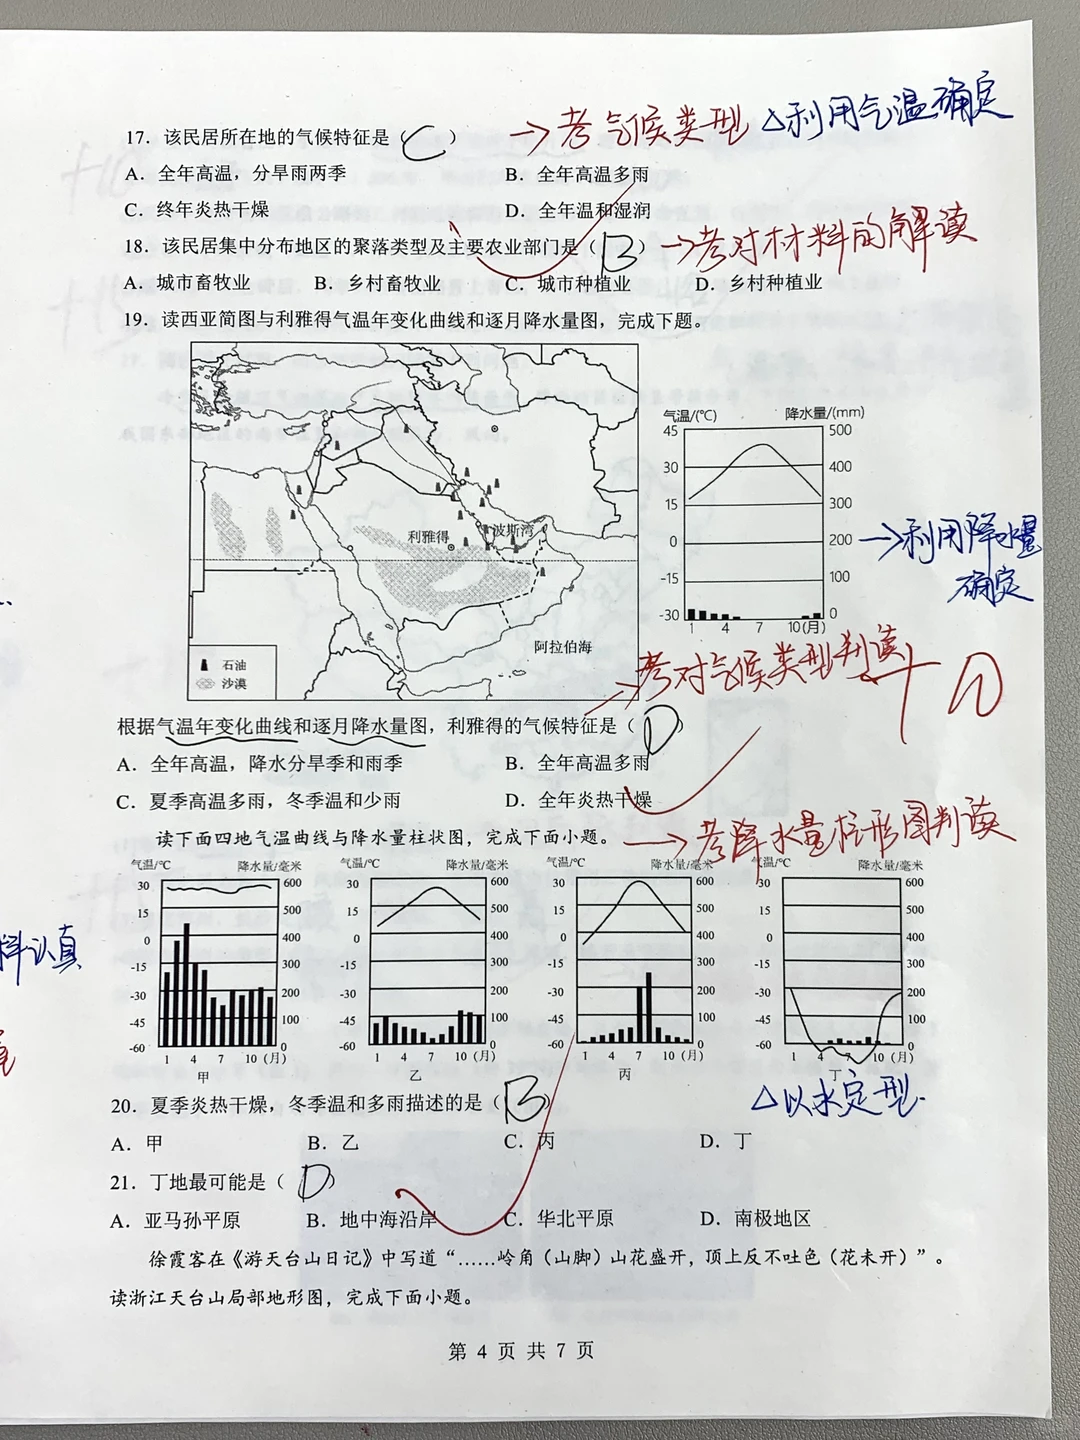 17. 该民居所在地的气候特征是（ C ） →考气候类型 △利用气温确定
A. 全年高温，分旱雨两季 B. 全年高温多雨
C. 终年炎热干燥 D. 全年温和湿润
18. 该民居集中分布地区的聚落类型及主要农业部门是（ B ） →考对材料的解读
A. 城市畜牧业 B. 乡村畜牧业 C. 城市种植业 D. 乡村种植业
19. 读西亚简图与利雅得气温年变化曲线和逐月降水量图，完成下题。
利雅得
波斯湾
阿拉伯海
石油
沙漠
气温/(℃) 降水量/(mm)
45 500
30 400
15 300
0 200
-15 100
-30 0
1 4 7 10(月)
→利用降水量
确定
→考对气候类型判读
根据气温年变化曲线和逐月降水量图，利雅得的气候特征是（ D ）
A. 全年高温，降水分旱季和雨季 B. 全年高温多雨
C. 夏季高温多雨，冬季温和少雨 D. 全年炎热干燥
读下面四地气温曲线与降水量柱状图，完成下面小题。 →考降水量柱形图判读
气温/℃ 降水量/毫米 气温/℃ 降水量/毫米 气温/℃ 降水量/毫米 气温/℃ 降水量/毫米
30 600 30 600 30 600 30 600
15 500 15 500 15 500 15 500
0 400 0 400 0 400 0 400
-15 300 -15 300 -15 300 -15 300
-30 200 -30 200 -30 200 -30 200
-45 100 -45 100 -45 100 -45 100
-60 0 -60 0 -60 0 -60 0
1 4 7 10 (月) 1 4 7 10 (月) 1 4 7 10 (月) 1 4 7 10 (月)
甲 乙 丙 丁
样认真
△以水定型.
20. 夏季炎热干燥，冬季温和多雨描述的是（ B ）
A. 甲 B. 乙 C. 丙 D. 丁
21. 丁地最可能是（ D ）
A. 亚马孙平原 B. 地中海沿岸 C. 华北平原 D. 南极地区
徐霞客在《游天台山日记》中写道“……岭角（山脚）山花盛开，顶上反不吐色（花未开）”。
读浙江天台山局部地形图，完成下面小题。
第 4 页 共 7 页